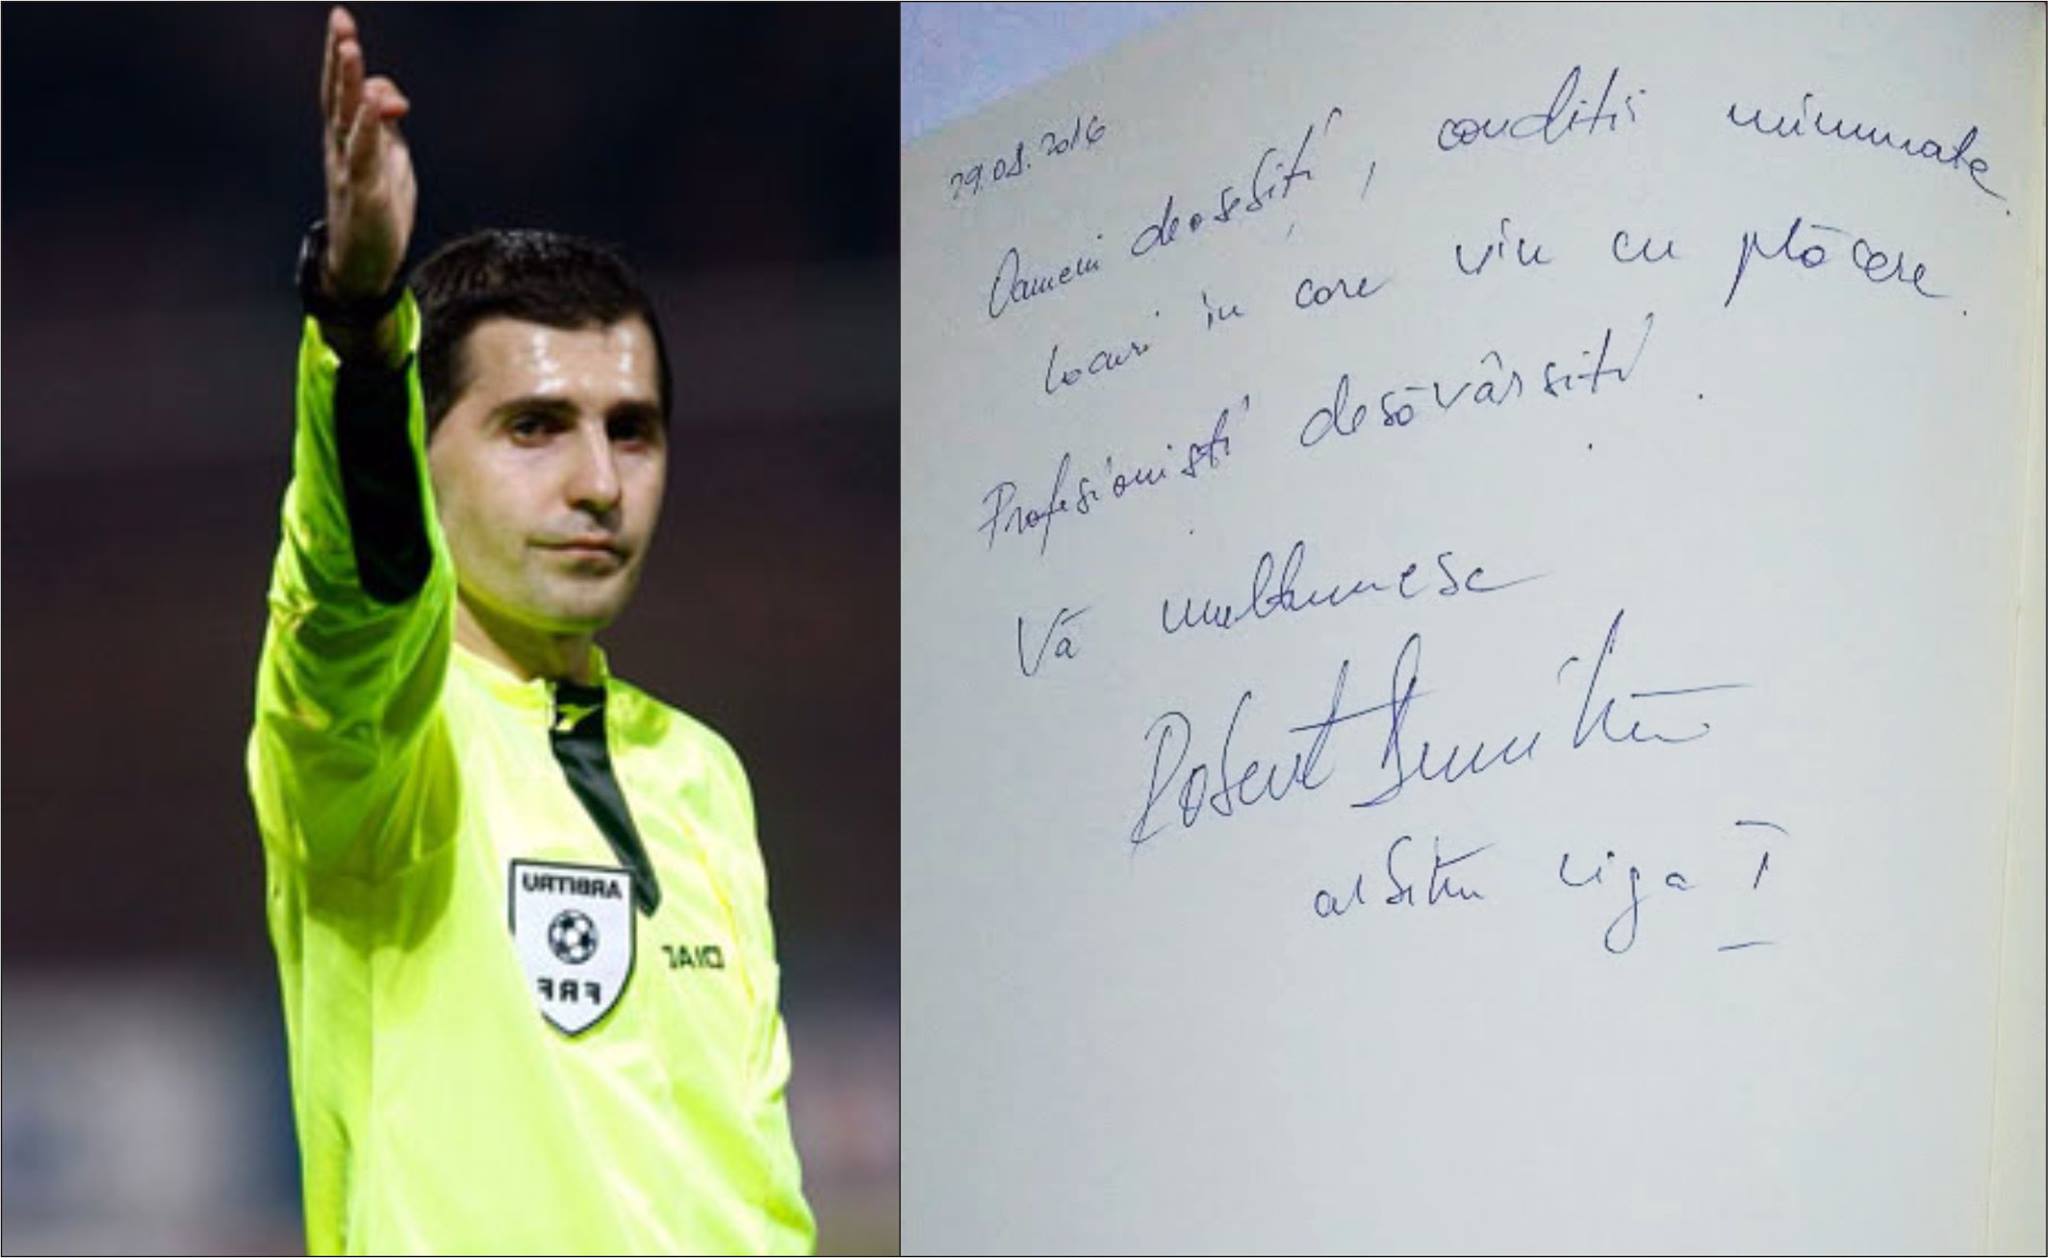 URTIBRA
FRF
DIAD
29.08.2016
Oameni deosebiți, condiții minunate.
Locuri în care viu cu plăcere.
Profesioniști desăvârșiti.
Vă multumesc
Robert Dumitru
arbitru Liga I